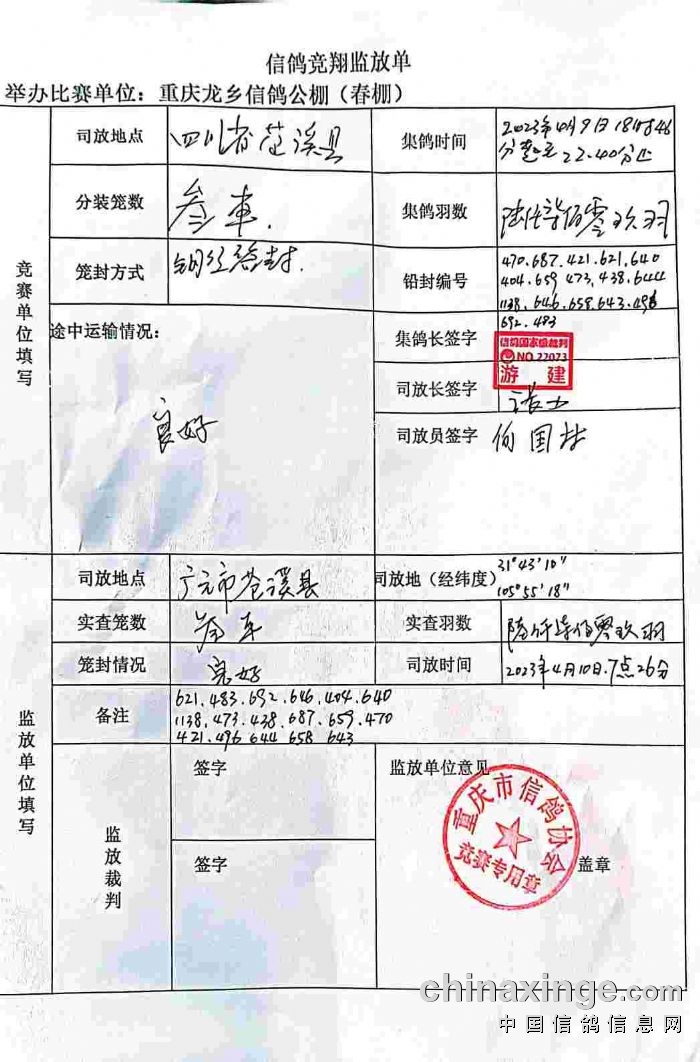 信鸽竞翔监放单
举办比赛单位：重庆龙乡信鸽公棚（春棚）
竞赛单位填写
司放地点 四川省苍溪县
集鸽时间 2023年04月9日18时46
分起至
22.40分止
分装笼数 叁车.
集鸽羽数 陆仟柒佰零玖羽
笼封方式
铅封编号 470.687.421.621.640
404.659 473.438.644
1138.646.658.643.496
692.483
途中运输情况：
良好
集鸽长签字
信鸽国家级裁判
NO.22073
游建
司放长签字
司放员签字 何国林
监放单位填写
司放地点 广元市苍溪县
司放地（经纬度） 31°43′10″
105°55′18″
实查笼数 叁车
实查羽数 陆仟柒佰零玖羽
笼封情况 良好
司放时间 2023年4月10日.7点26分
备注 621.483.692.646.404.640
1138.473.438.687.659.470
421.496 644 658 643
监放裁判
签字
签字
监放单位意见
重庆市信鸽协会
竞赛专用章
盖章
chinaxinge.com
中国信鸽信息网